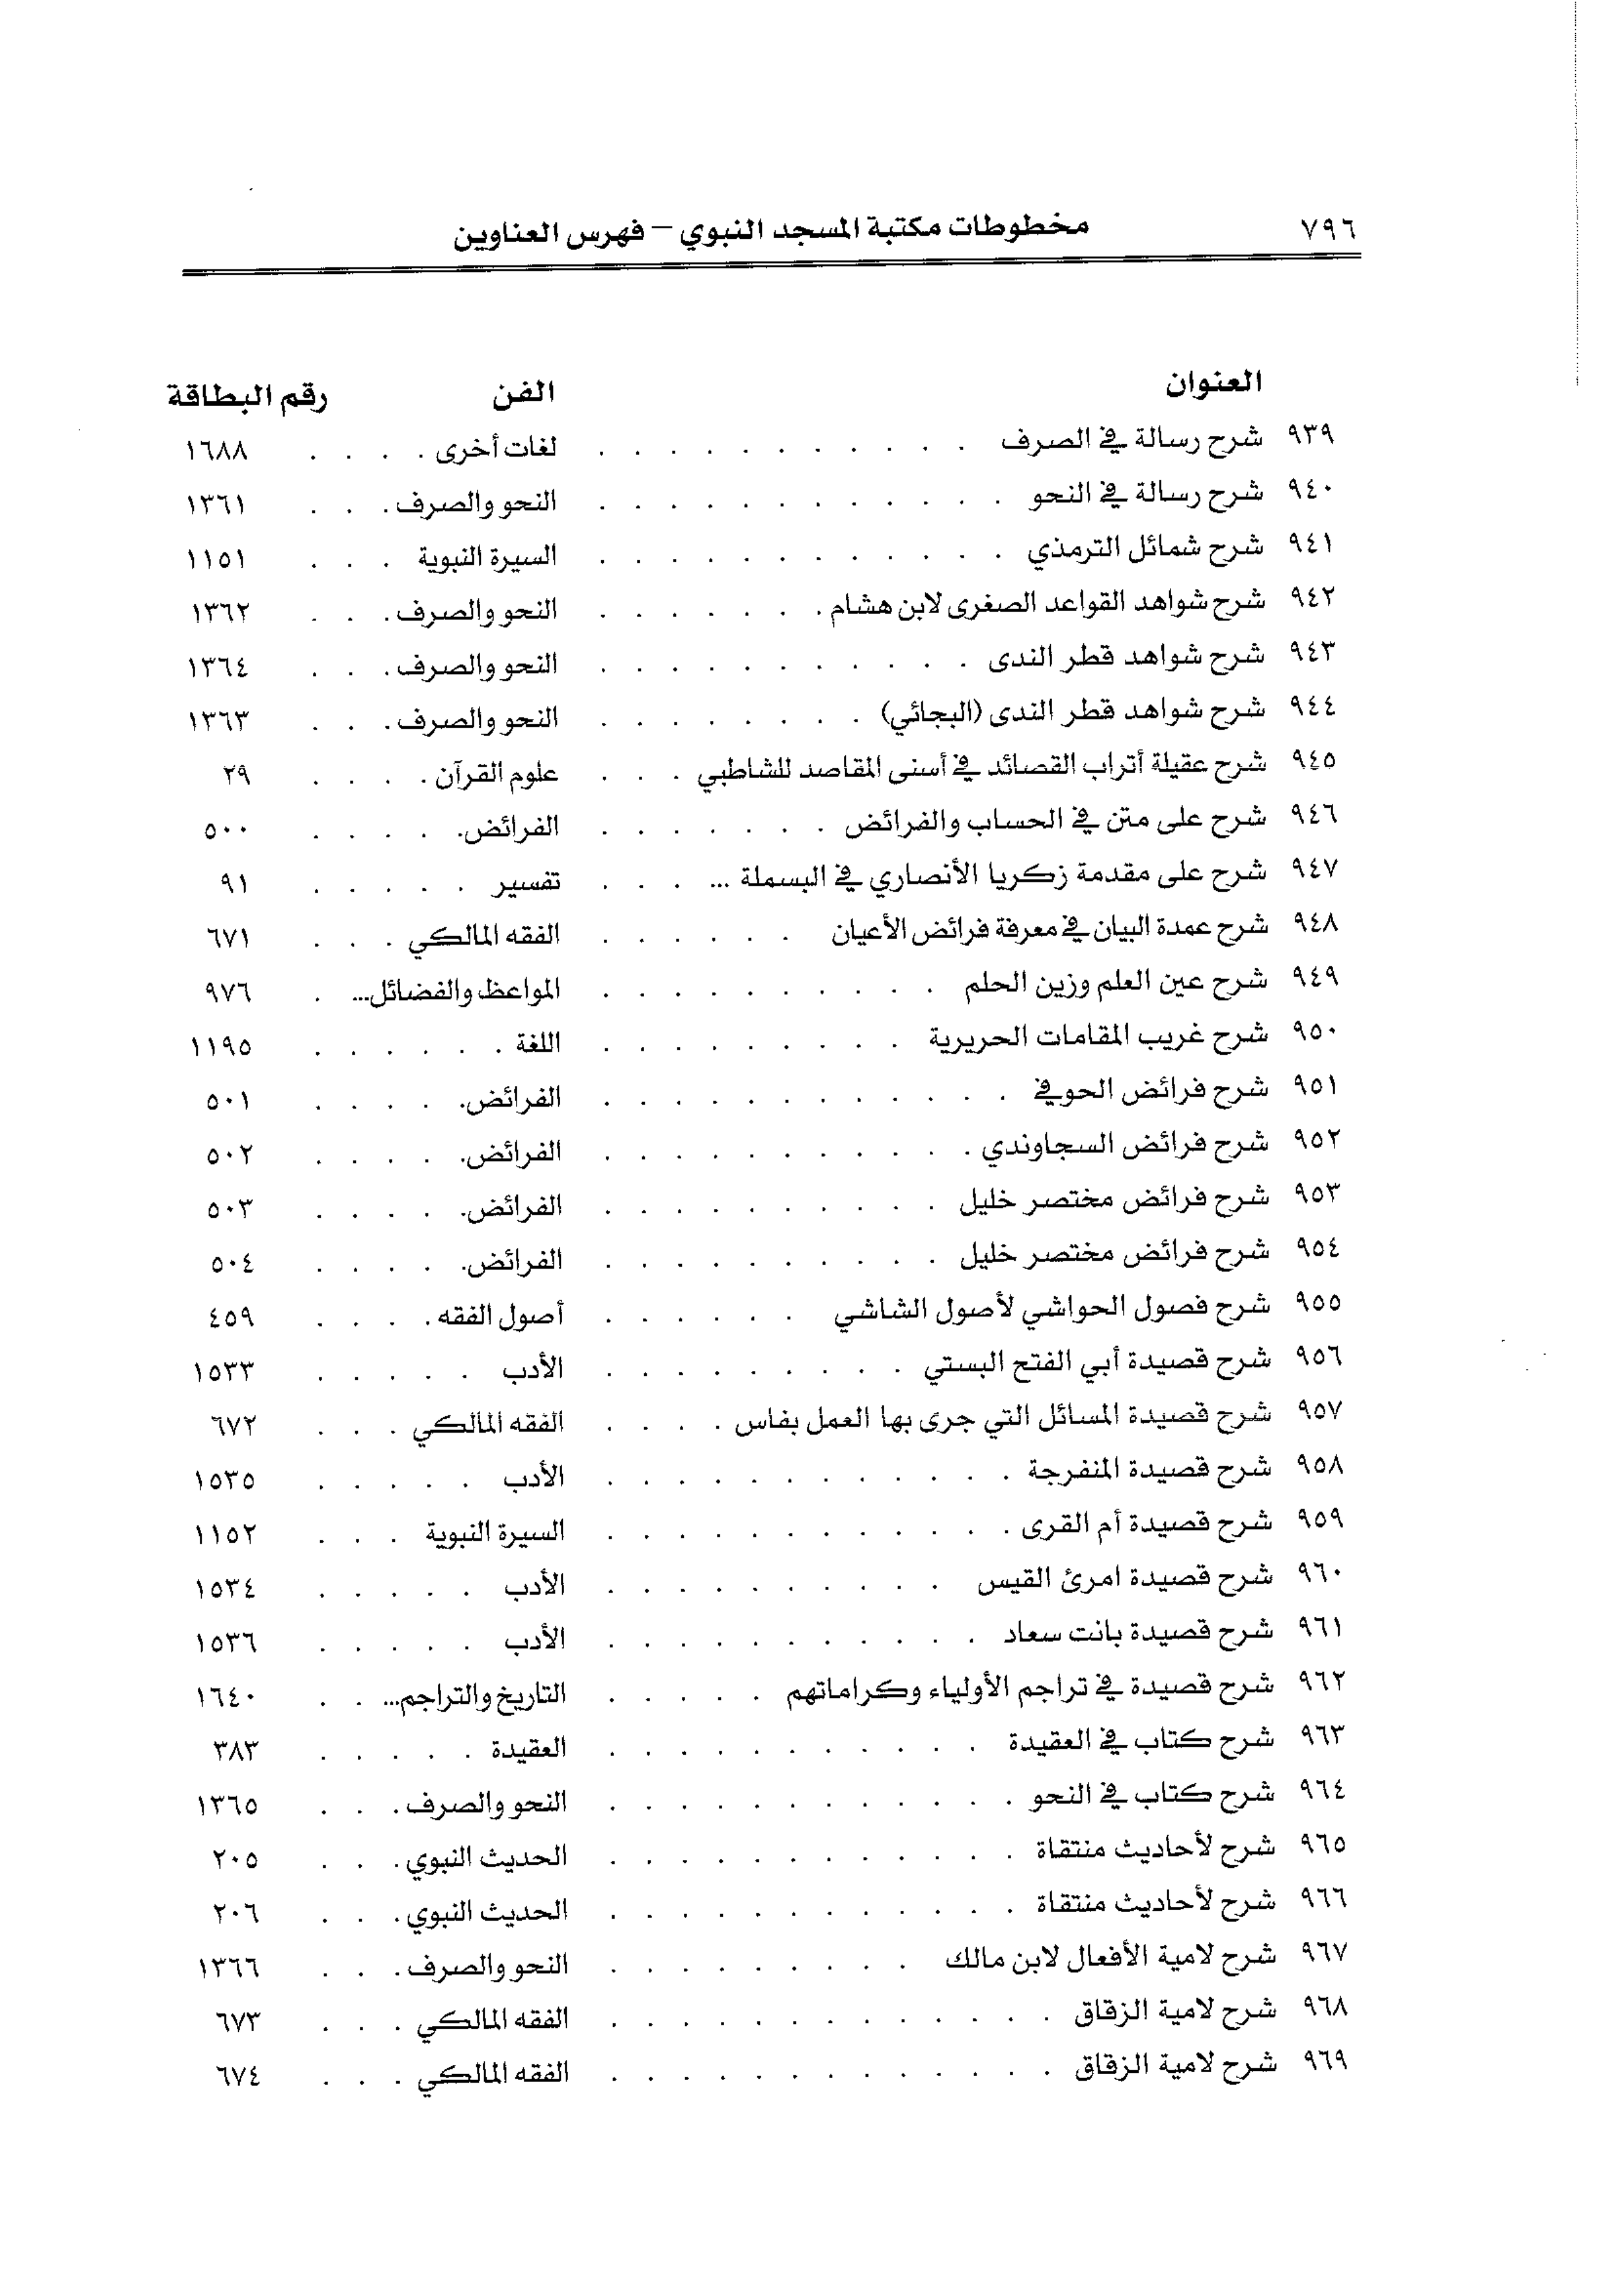 ٧٩٦ مخطوطات مكتبة المسجد النبوي – فهرس العناوين
العنوان الفن رقم البطاقة
٩٣٩ شرح رسالة في الصرف . . . . . . . . . . . لغات أخرى . . . . ١٦٨٨
٩٤٠ شرح رسالة في النحو . . . . . . . . . . . . النحو والصرف . . . ١٣٦١
٩٤١ شرح شمائل الترمذي . . . . . . . . . . . . السيرة النبوية . . . ١١٥١
٩٤٢ شرح شواهد القواعد الصغرى لابن هشام . . . . . . . النحو والصرف . . . ١٣٦٢
٩٤٣ شرح شواهد قطر الندى . . . . . . . . . . . النحو والصرف . . . ١٣٦٤
٩٤٤ شرح شواهد قطر الندى (البجائي) . . . . . . . . النحو والصرف . . . ١٣٦٣
٩٤٥ شرح عقيلة أتراب القصائد في أسنى المقاصد للشاطبي . . . علوم القرآن . . . . ٢٩
٩٤٦ شرح على متن في الحساب والفرائض . . . . . . . الفرائض . . . . . ٥٠٠
٩٤٧ شرح على مقدمة زكريا الأنصاري في البسملة ... . . . تفسير . . . . . ٩١
٩٤٨ شرح عمدة البيان في معرفة فرائض الأعيان . . . . . . الفقه المالكي . . . ٦٧١
٩٤٩ شرح عين العلم وزين الحلم . . . . . . . . . . المواعظ والفضائل... . ٩٧٦
٩٥٠ شرح غريب المقامات الحريرية . . . . . . . . . اللغة . . . . . . ١١٩٥
٩٥١ شرح فرائض الحوفي . . . . . . . . . . . . الفرائض . . . . . ٥٠١
٩٥٢ شرح فرائض السجاوندي . . . . . . . . . . . الفرائض . . . . . ٥٠٢
٩٥٣ شرح فرائض مختصر خليل . . . . . . . . . . الفرائض . . . . . ٥٠٣
٩٥٤ شرح فرائض مختصر خليل . . . . . . . . . . الفرائض . . . . . ٥٠٤
٩٥٥ شرح فصول الحواشي لأصول الشاشي . . . . . . أصول الفقه . . . . ٤٥٩
٩٥٦ شرح قصيدة أبي الفتح البستي . . . . . . . . . الأدب . . . . . ١٥٣٣
٩٥٧ شرح قصيدة المسائل التي جرى بها العمل بفاس . . . . الفقه المالكي . . . ٦٧٢
٩٥٨ شرح قصيدة المنفرجة . . . . . . . . . . . . الأدب . . . . . ١٥٣٥
٩٥٩ شرح قصيدة أم القرى . . . . . . . . . . . . السيرة النبوية . . . ١١٥٢
٩٦٠ شرح قصيدة امرئ القيس . . . . . . . . . . الأدب . . . . . ١٥٣٤
٩٦١ شرح قصيدة بانت سعاد . . . . . . . . . . . الأدب . . . . . ١٥٣٦
٩٦٢ شرح قصيدة في تراجم الأولياء وكراماتهم . . . . . التاريخ والتراجم... . . ١٦٤٠
٩٦٣ شرح كتاب في العقيدة . . . . . . . . . . . العقيدة . . . . . ٣٨٣
٩٦٤ شرح كتاب في النحو . . . . . . . . . . . . النحو والصرف . . . ١٣٦٥
٩٦٥ شرح لأحاديث منتقاة . . . . . . . . . . . . الحديث النبوي . . . ٢٠٥
٩٦٦ شرح لأحاديث منتقاة . . . . . . . . . . . . الحديث النبوي . . . ٢٠٦
٩٦٧ شرح لامية الأفعال لابن مالك . . . . . . . . . النحو والصرف . . . ١٣٦٦
٩٦٨ شرح لامية الزقاق . . . . . . . . . . . . . الفقه المالكي . . . ٦٧٣
٩٦٩ شرح لامية الزقاق . . . . . . . . . . . . . الفقه المالكي . . . ٦٧٤